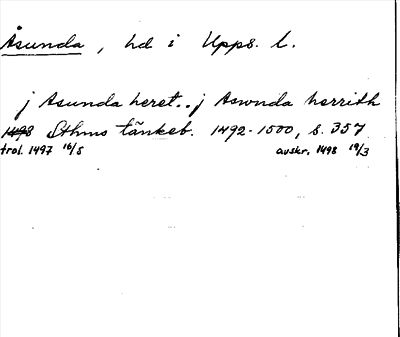 Åsunda, hd i Upps. l.
j Asunda heret..j Aswnda herrith
1498 Sthms tänkeb. 1492-1500, s. 357
trol. 1497 16/5 avskr. 1498 19/3